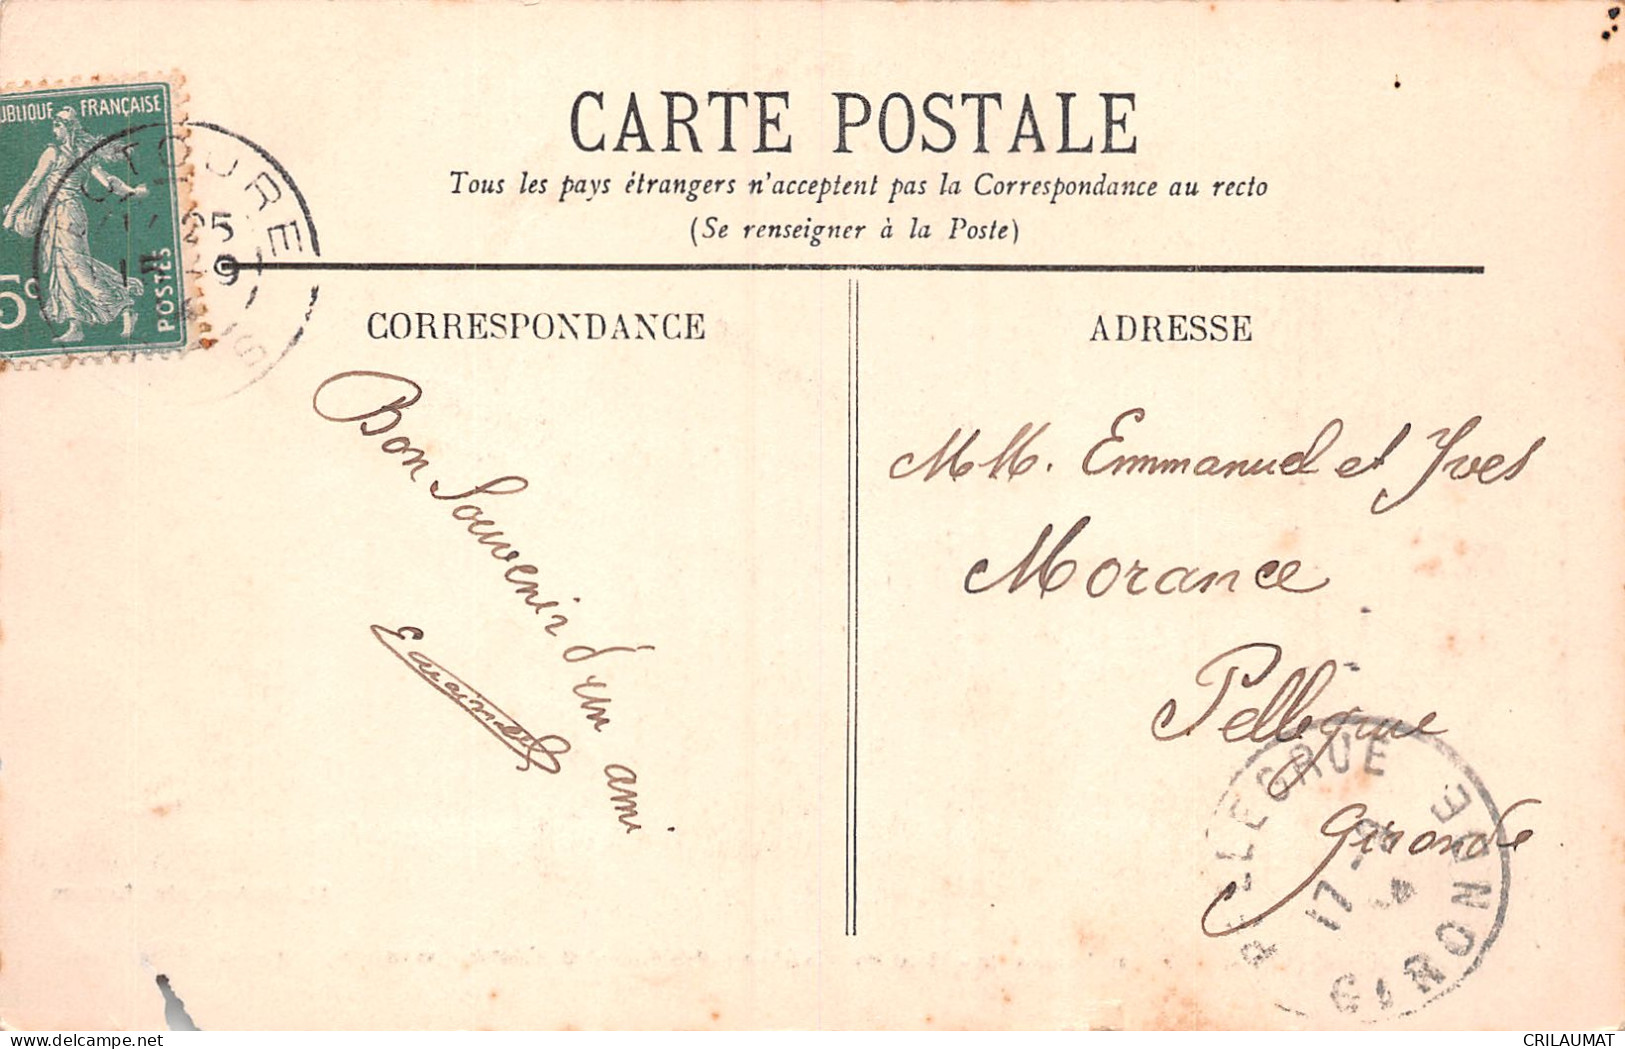 CARTE POSTALE
Tous les pays étrangers n'acceptent pas la Correspondance au recto
(Se renseigner à la Poste)
UBLIQUE FRANÇAISE
POSTES
5c
TOURE
25
9
CORRESPONDANCE
Bon Souvenir d'un ami
ADRESSE
MM. Emmanuel et Yves
Morance
Pellegrue
Gironde
LLEGRUE
17
GIRONDE
CRILAUMAT